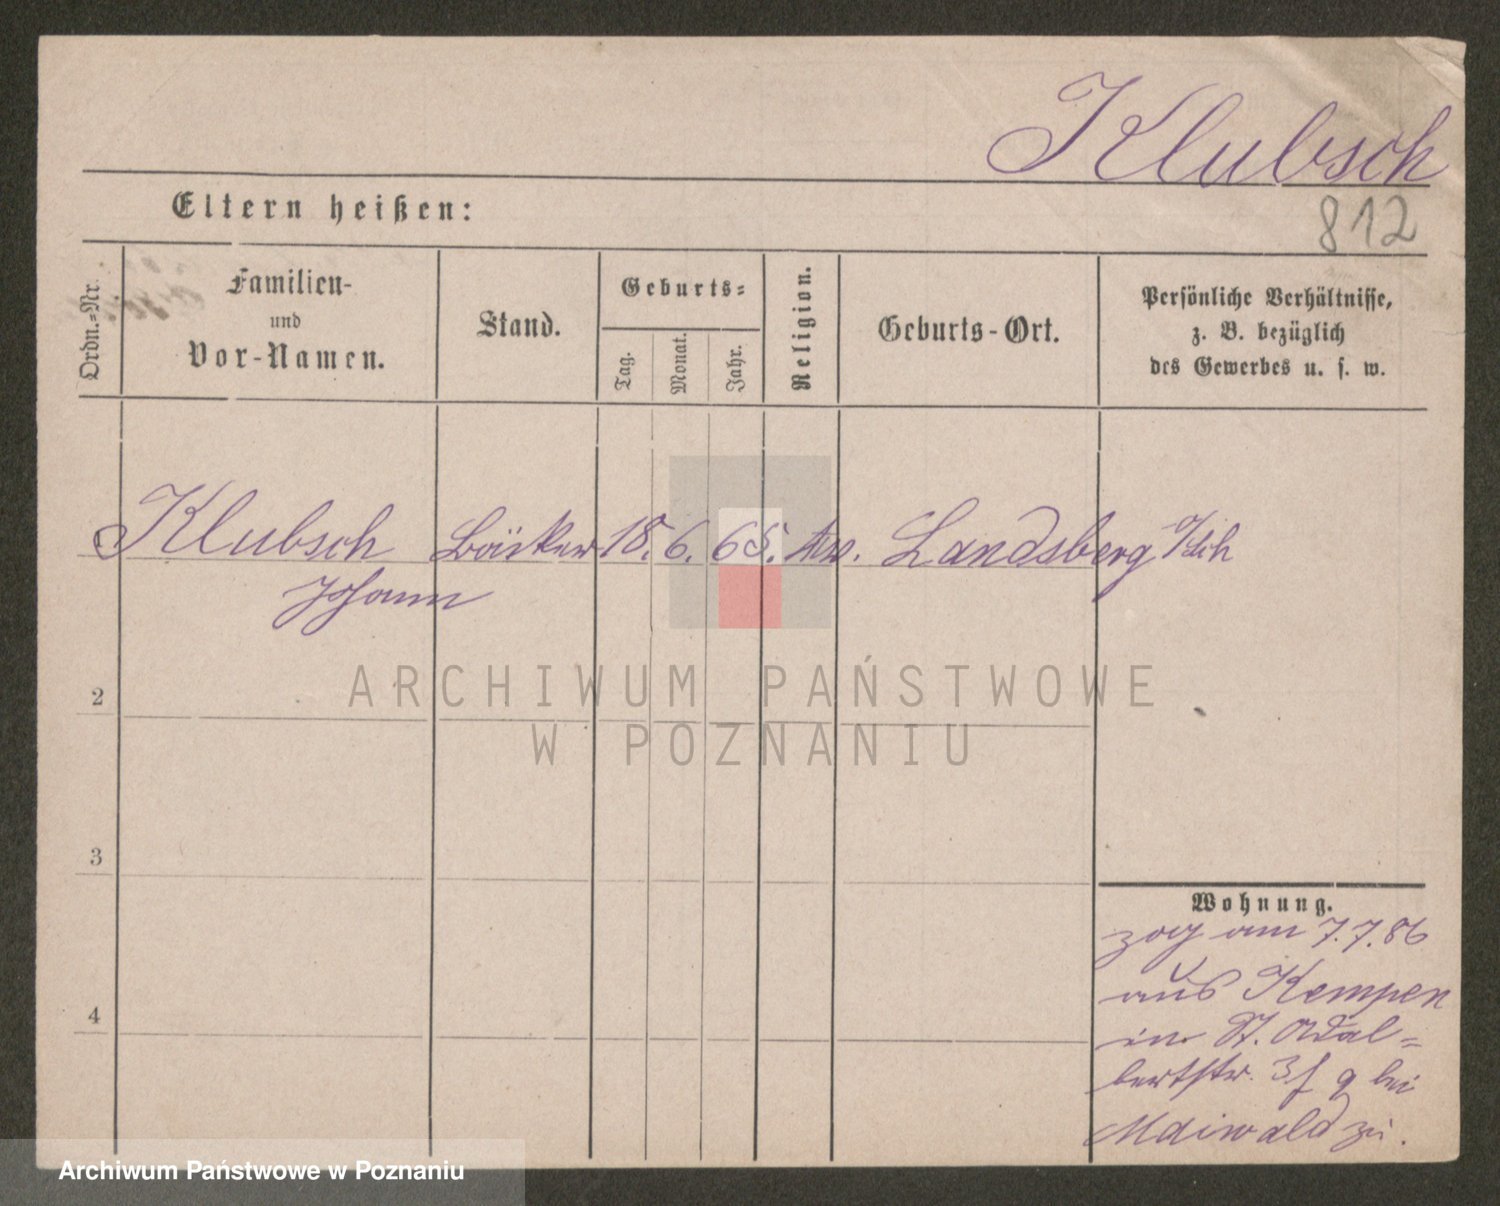 Klubsch
812
Eltern heißen:
Ordn.-Nr.
Familien-
und
Vor-Namen.
Stand.
Geburts-
Tag.
Monat.
Jahr.
Religion.
Geburts-Ort.
Persönliche Verhältnisse,
z. B. bezüglich
des Gewerbes u. s. w.
Klubsch Bäcker 18. 6. 65. Landsberg
Johann
2
3
4
Wohnung.
zog am 7.7.86
aus Kempen
in St. Adal-
bertstr. 3 bei
Maiwald zu.
ARCHIWUM PAŃSTWOWE
W POZNANIU
Archiwum Państwowe w Poznaniu